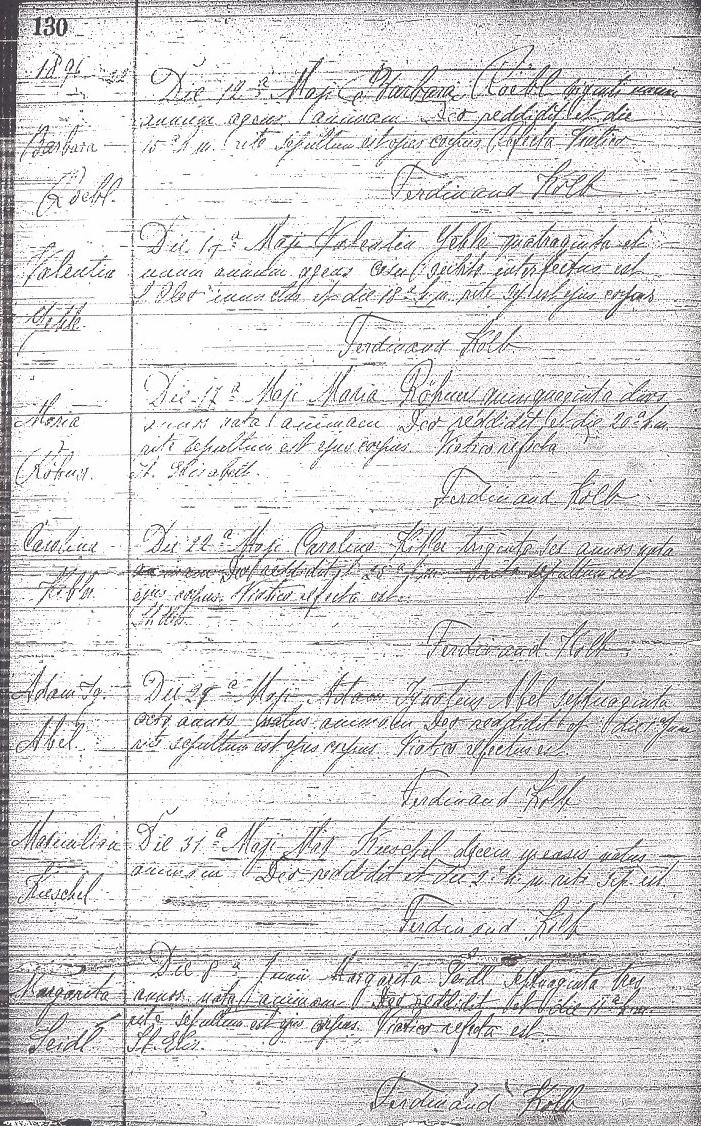 130
1896
Barbara
Roebl.
Die 12ª Maji Barbara Roebl viginti unum
annum agens animam Deo reddidit et die
15ª h. m. rite sepultum est ejus corpus Refecta Viatico
Ferdinand Kolb
Valentin
Die 17ª Maji Valentin quatraginta et
unum annum agens interfectus est
S. Oleo inunctus et die 18ª h. m. rite est ejus corpus
Ferdinand Kolb
Maria
Röhner.
Die 17ª Maji Maria Röhner quinquaginta duos
annos nata animam Deo reddidit et die 20ª h. m.
rite sepultum est ejus corpus. Viatico refecta
St. Elisabeth.
Ferdinand Kolb
Carolina
Die 22ª Maji Carolina triginta sex annos nata
animam Deo reddidit rite sepultum est
ejus corpus. Viatico refecta est.
Ferdinand Kolb
Adam Ig.
Abel
Die 28ª Maji Adam Ignatius Abel septuaginta
octo annos natus animam Deo reddidit et die Juni
rite sepultum est ejus corpus. Viatico refectus est.
Ferdinand Kolb
Kieschel
Die 31ª Maji Max Kieschel decem menses natus
animam Deo reddidit et die 2ª h. m. rite sep. est.
Ferdinand Kolb
Margarita
Seidl
Die 8ª Junii Margarita Seidl septuaginta tres
annos nata animam Deo reddidit et die 11ª h. m.
rite sepultum est ejus corpus. Viatico refecta est.
St. Elis.
Ferdinand Kolb